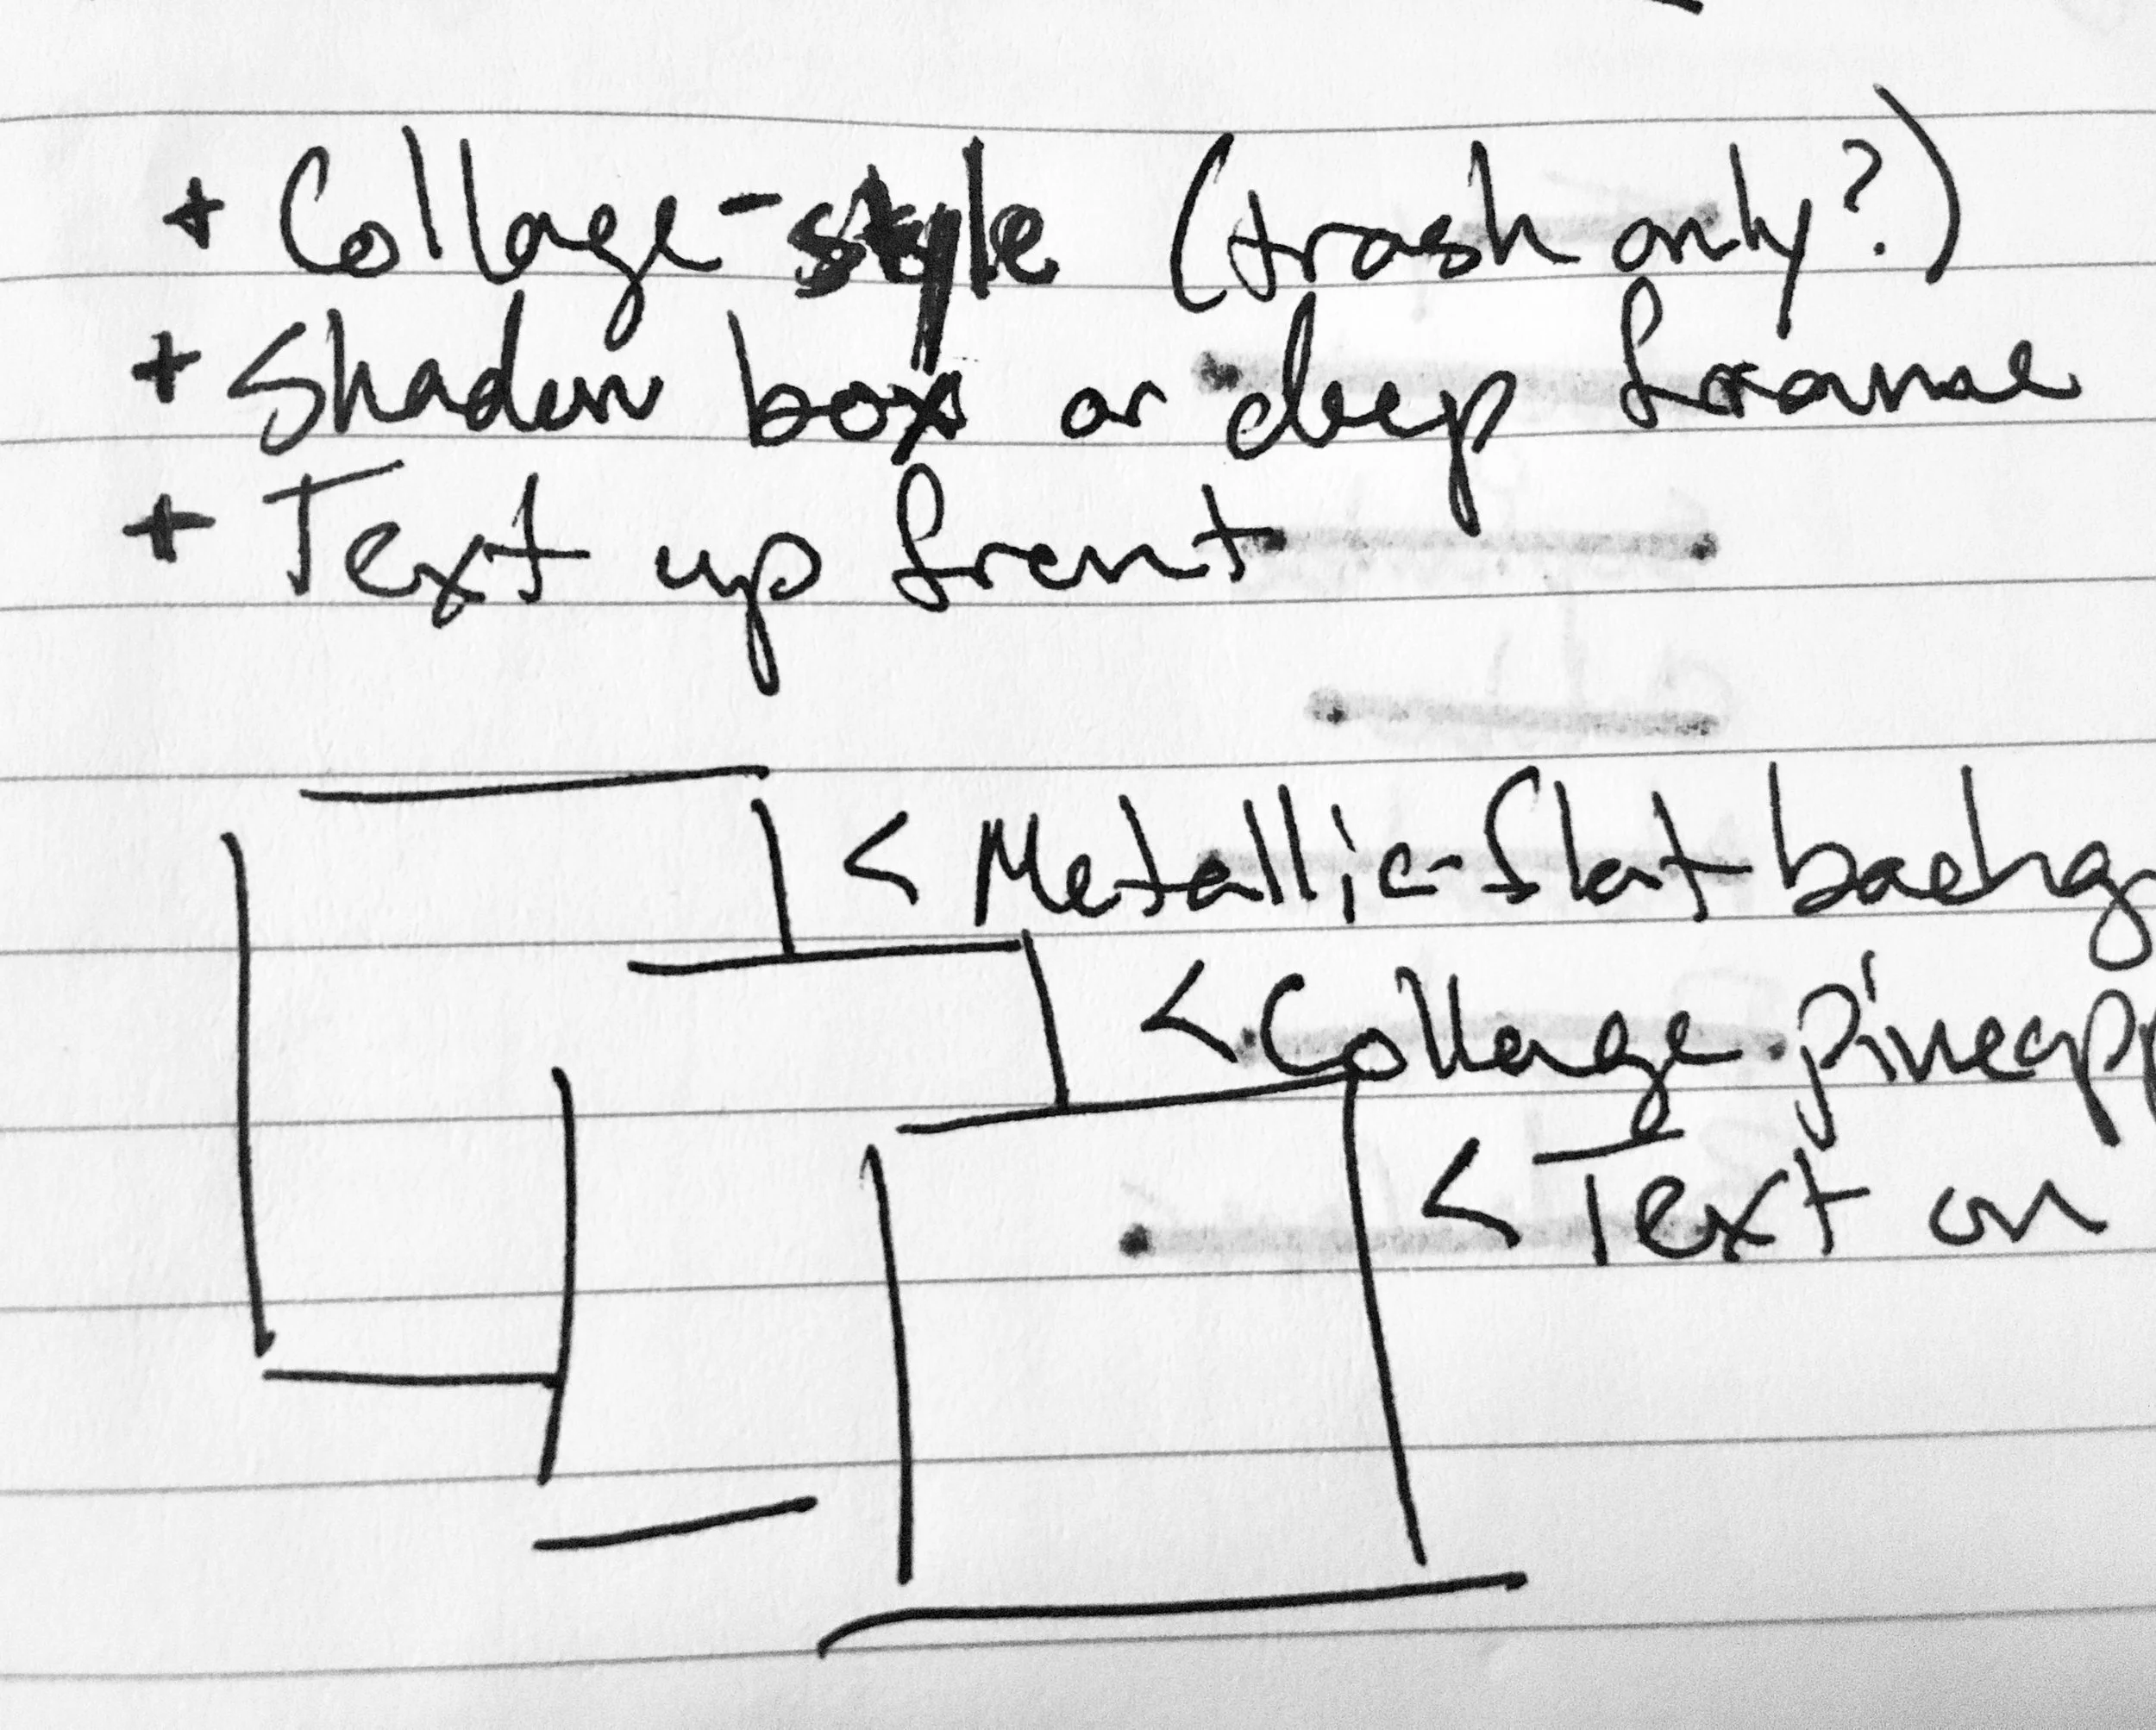 + Collage-style (trash only?)
+ Shadow box or deep frame
+ Text up front
< Metallic-flat backg
< Collage pineapp
< Text on